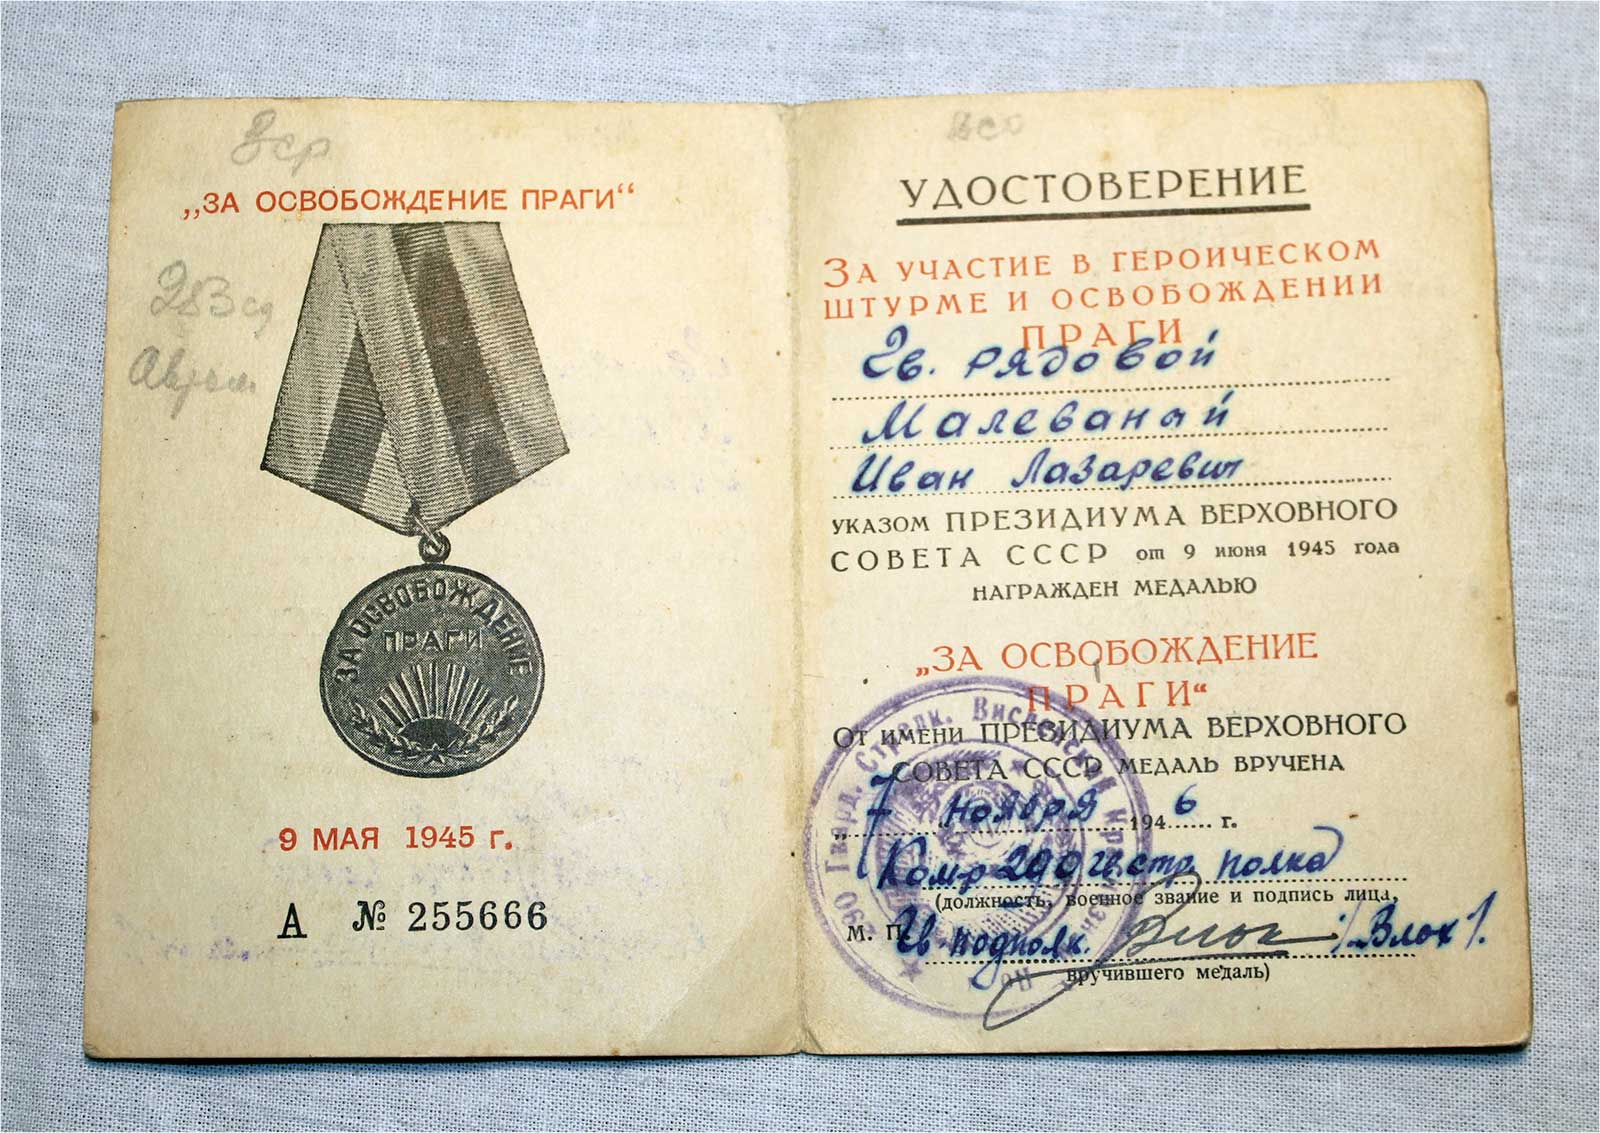 „ЗА ОСВОБОЖДЕНИЕ ПРАГИ“
ЗА ОСВОБОЖДЕНИЕ
ПРАГИ
9 МАЯ 1945 г.
А № 255666
УДОСТОВЕРЕНИЕ
ЗА УЧАСТИЕ В ГЕРОИЧЕСКОМ
ШТУРМЕ И ОСВОБОЖДЕНИИ
ПРАГИ
Гв. рядовой
Малеваный
Иван Лазаревич
УКАЗОМ ПРЕЗИДИУМА ВЕРХОВНОГО
СОВЕТА СССР от 9 июня 1945 года
НАГРАЖДЕН МЕДАЛЬЮ
„ЗА ОСВОБОЖДЕНИЕ
ПРАГИ“
ОТ ИМЕНИ ПРЕЗИДИУМА ВЕРХОВНОГО
СОВЕТА СССР МЕДАЛЬ ВРУЧЕНА
„7 ноября 1946 г.
Комр 290 гв. стр. полка
(должность, военное звание и подпись лица,
М. П. Гв. подполк. /Влох/.
вручившего медаль)
290 Гвард. Стрелк. Висленский